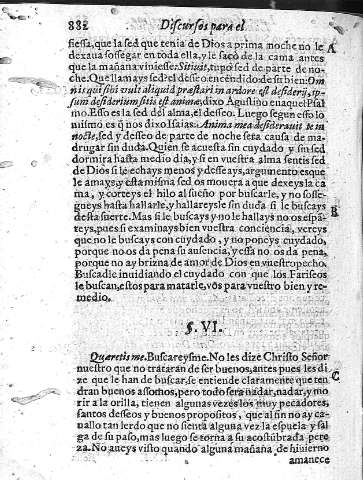 882 Discursos para el
fiessa, que la sed que tenia de Dios a prima noche no le A
dexaua sossegar en toda ella, y le sacò de la cama antes
que la mañana viniesse. Sitiuit, tuuo sed de parte de no-
che. Que llamays sed? el desseo encẽdido de su bien: Om
nis qui sibi vult aliquid præstari in ardore est desiderij, ip-
sum desiderium sitis est animæ, dixo Agustino en aquel Psal
mo. Esso es la sed del alma, el desseo. Luego segun esso lo
mismo es q̃ nos dixo Isaias: Anima mea desiderauit te in
nocte, sed y desseo de parte de noche essa causa de ma-
drugar sin duda. Quien se acuesta sin cuydado y sin sed
dormira hasta medio dia, y si en vuestra alma sentis sed
de Dios si le echays menos y desseays, argumento es que
le amays, y esta misma sed os mouera a que dexeys la ca
ma, y corteys el hilo al sueño por buscarle, y no sosse-
gueys hasta hallarle, y hallareysle sin duda si le buscays
desta suerte. Mas si le buscays y no le hallays no os espã- B
teys, pues si examinays bien vuestra conciencia, vereys
que no le buscays con cuydado, y no poneys cuydado,
porque no os da pena su ausencia, y essa no os da pena,
porque no ay brizna de amor de Dios en vuestro pecho.
Buscadle inuidiando el cuydado con que los Fariseos
le buscan, estos para matarle, vos para vuestro bien y re-
medio.
§. VI.
Quæretis me. Buscareysme. No les dize Christo Señor
nuestro que no trataran de ser buenos, antes pues les di
ze que le han de buscar, se entiende claramente que ten C
dran buenos assomos, pero todo sera nadar, nadar, y mo
rir a la orilla, tienen algunas vezes los muy pecadores,
santos desseos y buenos propositos, que al fin no ay ca-
uallo tan lerdo que no sienta alguna vez la espuela y sal
ga de su paso, mas luego se torna a su acostũbrada pere
za. No aueys visto quando alguna mañana de hiuierno
amanece